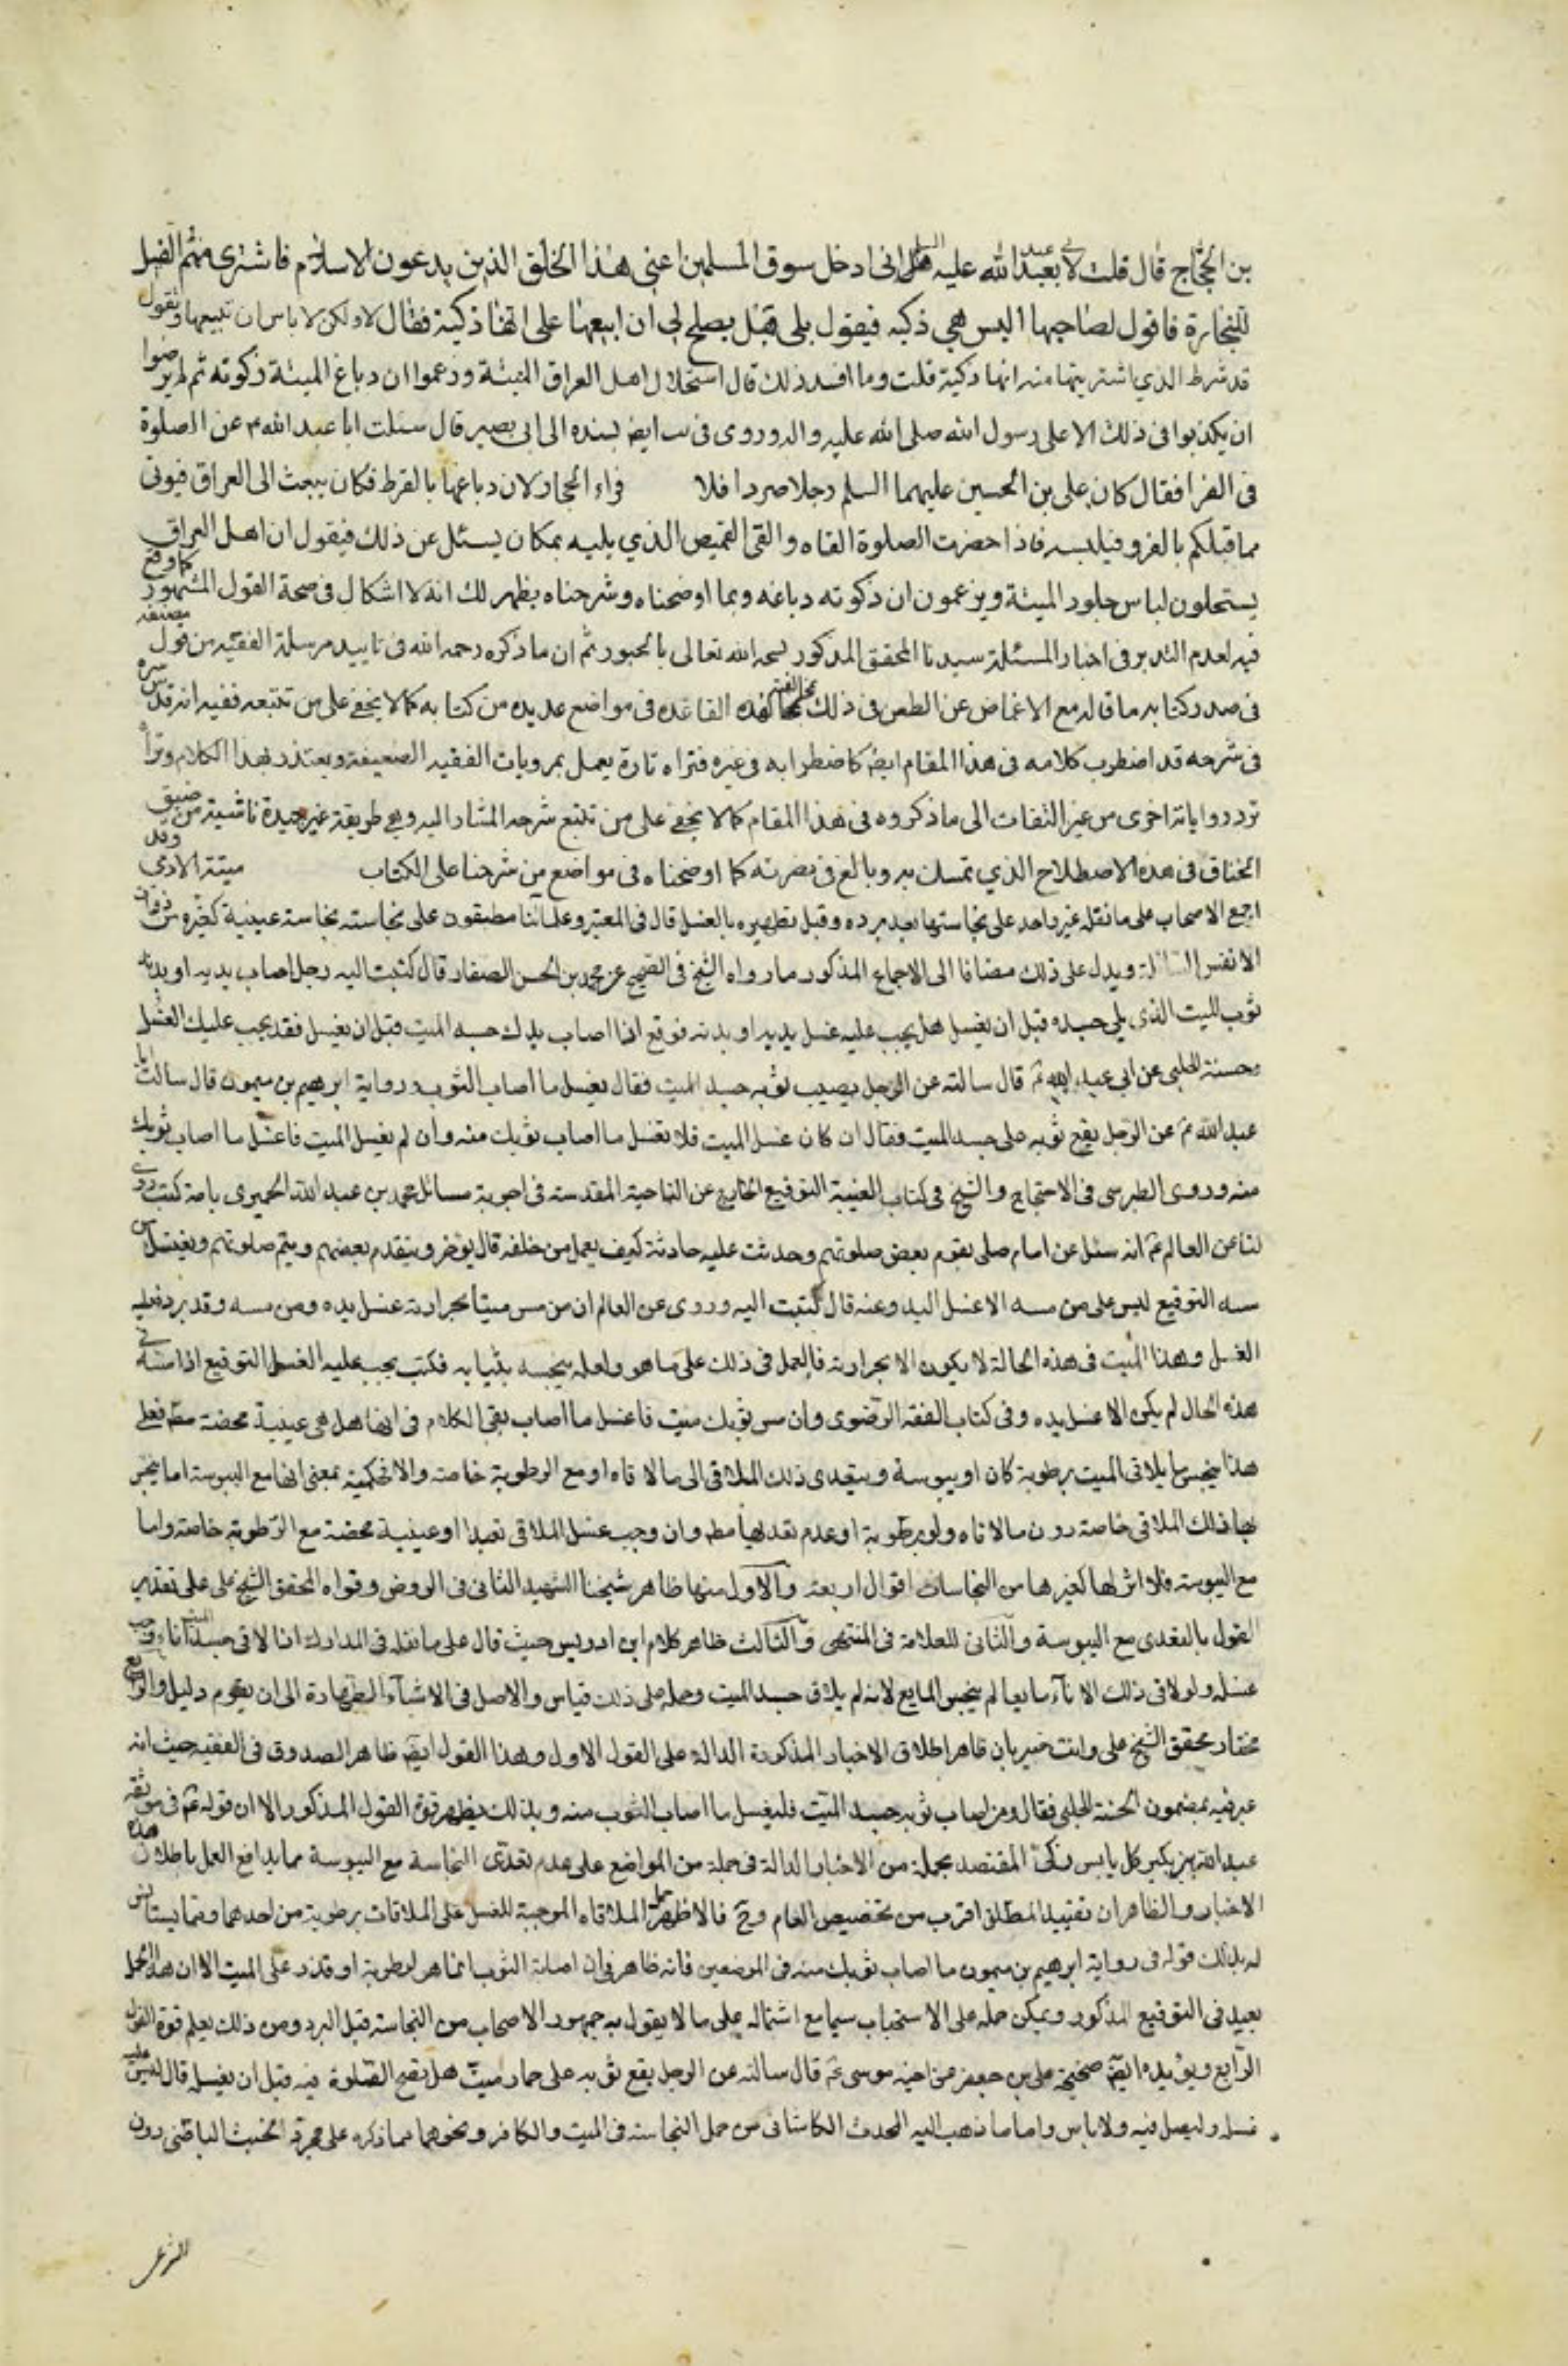 بن الحجاج قال قلت لابي عبد الله عليه السلم اني ادخل سوق المسلمين اعني هذا الخلق الذين يدعون الاسلام فاشترى منهم الفرا
للتجارة فاقول لصاحبها اليس هي ذكيه فيقول بلى فهل يصلح لي ان ابيعها على انها ذكية فقال لا ولكن لا باس ان تبيعها وتقول
قد شرط الذي اشتريتها منه انها ذكية قلت وما افسد ذلك قال استحلال اهل العراق الميتة وزعموا ان دباغ الميتة ذكوته ثم لم يرضوا
ان يكذبوا في ذلك الا على رسول الله صلى الله عليه واله وروى في ايض بسنده الى ابي بصير قال سئلت ابا عبد الله ع عن الصلوة
في الفرا فقال كان علي بن الحسين عليهما السلم رجلا صردا فلا فراء الحجاز لان دباغها بالقرظ فكان يبعث الى العراق فيوتى
مما قبلكم بالفرو فيلبسه فاذا حضرت الصلوة القاه والقى القميص الذي يليه بمكان يسئل عن ذلك فيقول ان اهل العراق
يستحلون لباس جلود الميتة ويزعمون ان ذكوته دباغه وبما اوضحناه وشرحناه يظهر لك انه لا اشكال في صحة القول المشهور كما وقع
فيه لعدم التدبر في اخبار المسئلة سيدنا المحقق المذكور لسحه الله تعالى بالحبور ثم ان ما ذكره رحمه الله في تاييد مرسلة الفقيه من قول مصنفه
في صدر كتابه ما قاله مع الاغماض عن الطعن في ذلك بمخالفته لهذه القاعده في مواضع عديده من كتابه كما لا يخفى على من تتبعه ففيه انه قدس سره
في شرحه قد اضطرب كلامه في هذا المقام ايض كاضطرابه في غيره فتراه تارة يعمل بمرويات الفقيه الضعيفة ويعتذر بهذا الكلام وتراه
ترد رواياته اخرى من غير التفات الى ما ذكروه في هذا المقام كما لا يخفى على من تتبع شرحه المشار اليه وهي طريقة غير جيدة ناشئة من ضيق
الخناق في هذه الاصطلاح الذي تمسك به وبالغ في نصرته كما اوضحناه في مواضع من شرحنا على الكتاب ميتة الادمي وقد
اجمع الاصحاب على ما نقله غير واحد على نجاستها بعد برده وقبل تطهيره بالغسل قال في المعتبر وعلمائنا مطبقون على نجاسته نجاسة عينية كغيره من ذوات
الانفس السائلة ويدل على ذلك مضافا الى الاجماع المذكور ما رواه الشيخ في الصحيح عن محمد بن الحسن الصفار قال كتبت اليه رجل اصاب يديه او بدنه
ثوب الميت الذي يلي جسده قبل ان يغسل هل يجب عليه غسل يديه او بدنه فوقع اذا اصاب يدك جسد الميت قبل ان يغسل فقد يجب عليك الغسل
وحسنة الحلبي عن ابي عبد الله ع قال سالته عن الرجل يصيب ثوبه جسد الميت فقال يغسل ما اصاب الثوب ورواية ابرهيم بن ميمون قال سالت ابا
عبد الله ع عن الرجل يقع ثوبه على جسد الميت فقال ان كان غسل الميت فلا تغسل ما اصاب ثوبك منه وان لم يغسل الميت فاغسل ما اصاب ثوبك
منه وروى الطبرسي في الاحتجاج والشيخ في كتاب الغيبة التوقيع الخارج عن الناحية المقدسة في اجوبة مسائل محمد بن عبد الله الحميري بانه كتب روي
لنا عن العالم ع انه سئل عن امام صلى بقوم بعض صلوتهم وحدثت عليه حادثة كيف يعمل من خلفه قال يؤخر ويتقدم بعضهم ويتم صلوتهم ويغتسل من
مسه التوقيع ليس على من مسه الا غسل اليد وعنه قال كتبت اليه وروى عن العالم ان من مس ميتا بحرارته غسل يده ومن مسه وقد برد فعليه
الغسل وهذا الميت في هذه الحالة لا يكون الا بحرارته فالعمل في ذلك على ما هو ولعله ينحيه بثيابه فكتب يجب عليه الغسل التوقيع اذا مسه في
هذه الحال لم يكن الا غسل يده وفي كتاب الفقه الرضوي وان مس ثوبك ميت فاغسل ما اصاب بقي الكلام في انها هل هي عينية محضة مطم فعلى
هذا ينجس ما يلاقي الميت برطوبة كان او يبوسة ويتعدى ذلك الملاقي الى ما لاقاه او مع الرطوبة خاصة والا فحكمية بمعنى انها مع اليبوسة انما ينجس
بها ذلك الملاقي خاصة دون ما لاقاه ولو برطوبة او عدم تعديها مطم وان وجب غسل الملاقي تعبدا او عينية محضة مع الرطوبة خاصة واما
مع اليبوسة فلا اثر لها كغيرها من النجاسات اقوال اربعة والاول منها ظاهر شيخنا الشهيد الثاني في الروض وقواه المحقق الشيخ علي على تقدير
القول بالتعدى مع اليبوسة والثاني للعلامة في المنتهى والثالث ظاهر كلام ابن ادريس حيث قال على ما نقله في المدارك اذا لاقى جسد الميت اناء وجب
غسله ولو لاقى ذلك الاناء مايعا لم ينجس المايع لانه لم يلاق جسد الميت وحمله على ذلك قياس والاصل في الاشياء الطهارة الى ان يقوم دليل والرابع
مختار محقق الشيخ علي وانت خبير بان ظاهر اطلاق الاخبار المذكورة الدالة على القول الاول وهذا القول ايض ظاهر الصدوق في الفقيه حيث انه
عبر فيه بمضمون الحسنة الحلبي فقال ومن اصاب ثوبه جسد الميت فليغسل ما اصاب الثوب منه وبذلك يظهر قوة القول المذكور الا ان قوله ع في موثقة
عبد الله بن بكير كل يابس زكي المعتضد بجملة من الاخبار الدالة في جملة من المواضع على عدم تعدى النجاسة مع اليبوسة مما يدافع العمل باطلاق هذه
الاخبار والظاهر ان تقييد المطلق اقرب من تخصيص العام وح فالاظهر حمل الملاقاه الموجبة للغسل على الملاقات برطوبة من احدهما ومما يستانس
له بذلك قوله في رواية ابرهيم بن ميمون ما اصاب ثوبك منه في الموضعين فانه ظاهر في ان اصابة الثوب انما هو لرطوبة او قذر على الميت الا ان هذا الحمل
بعيد في التوقيع المذكور ويمكن حمله على الاستحباب سيما مع اشتماله على ما لا يقول به جمهور الاصحاب من النجاسة قبل البرد ومن ذلك يعلم قوة القول
الرابع ويؤيده ايض صحيحة علي بن جعفر عن اخيه موسى ع قال سالته عن الرجل يقع ثوبه على حمار ميت هل تصح الصلوة فيه قبل ان يغسله قال ليس عليه
غسله وليصل فيه ولا باس واما ما ذهب اليه المحدث الكاشاني من حمل النجاسة في الميت والكافر ونحوهما مما ذكره على مجرد الخبث الباطني دون
الشرعي